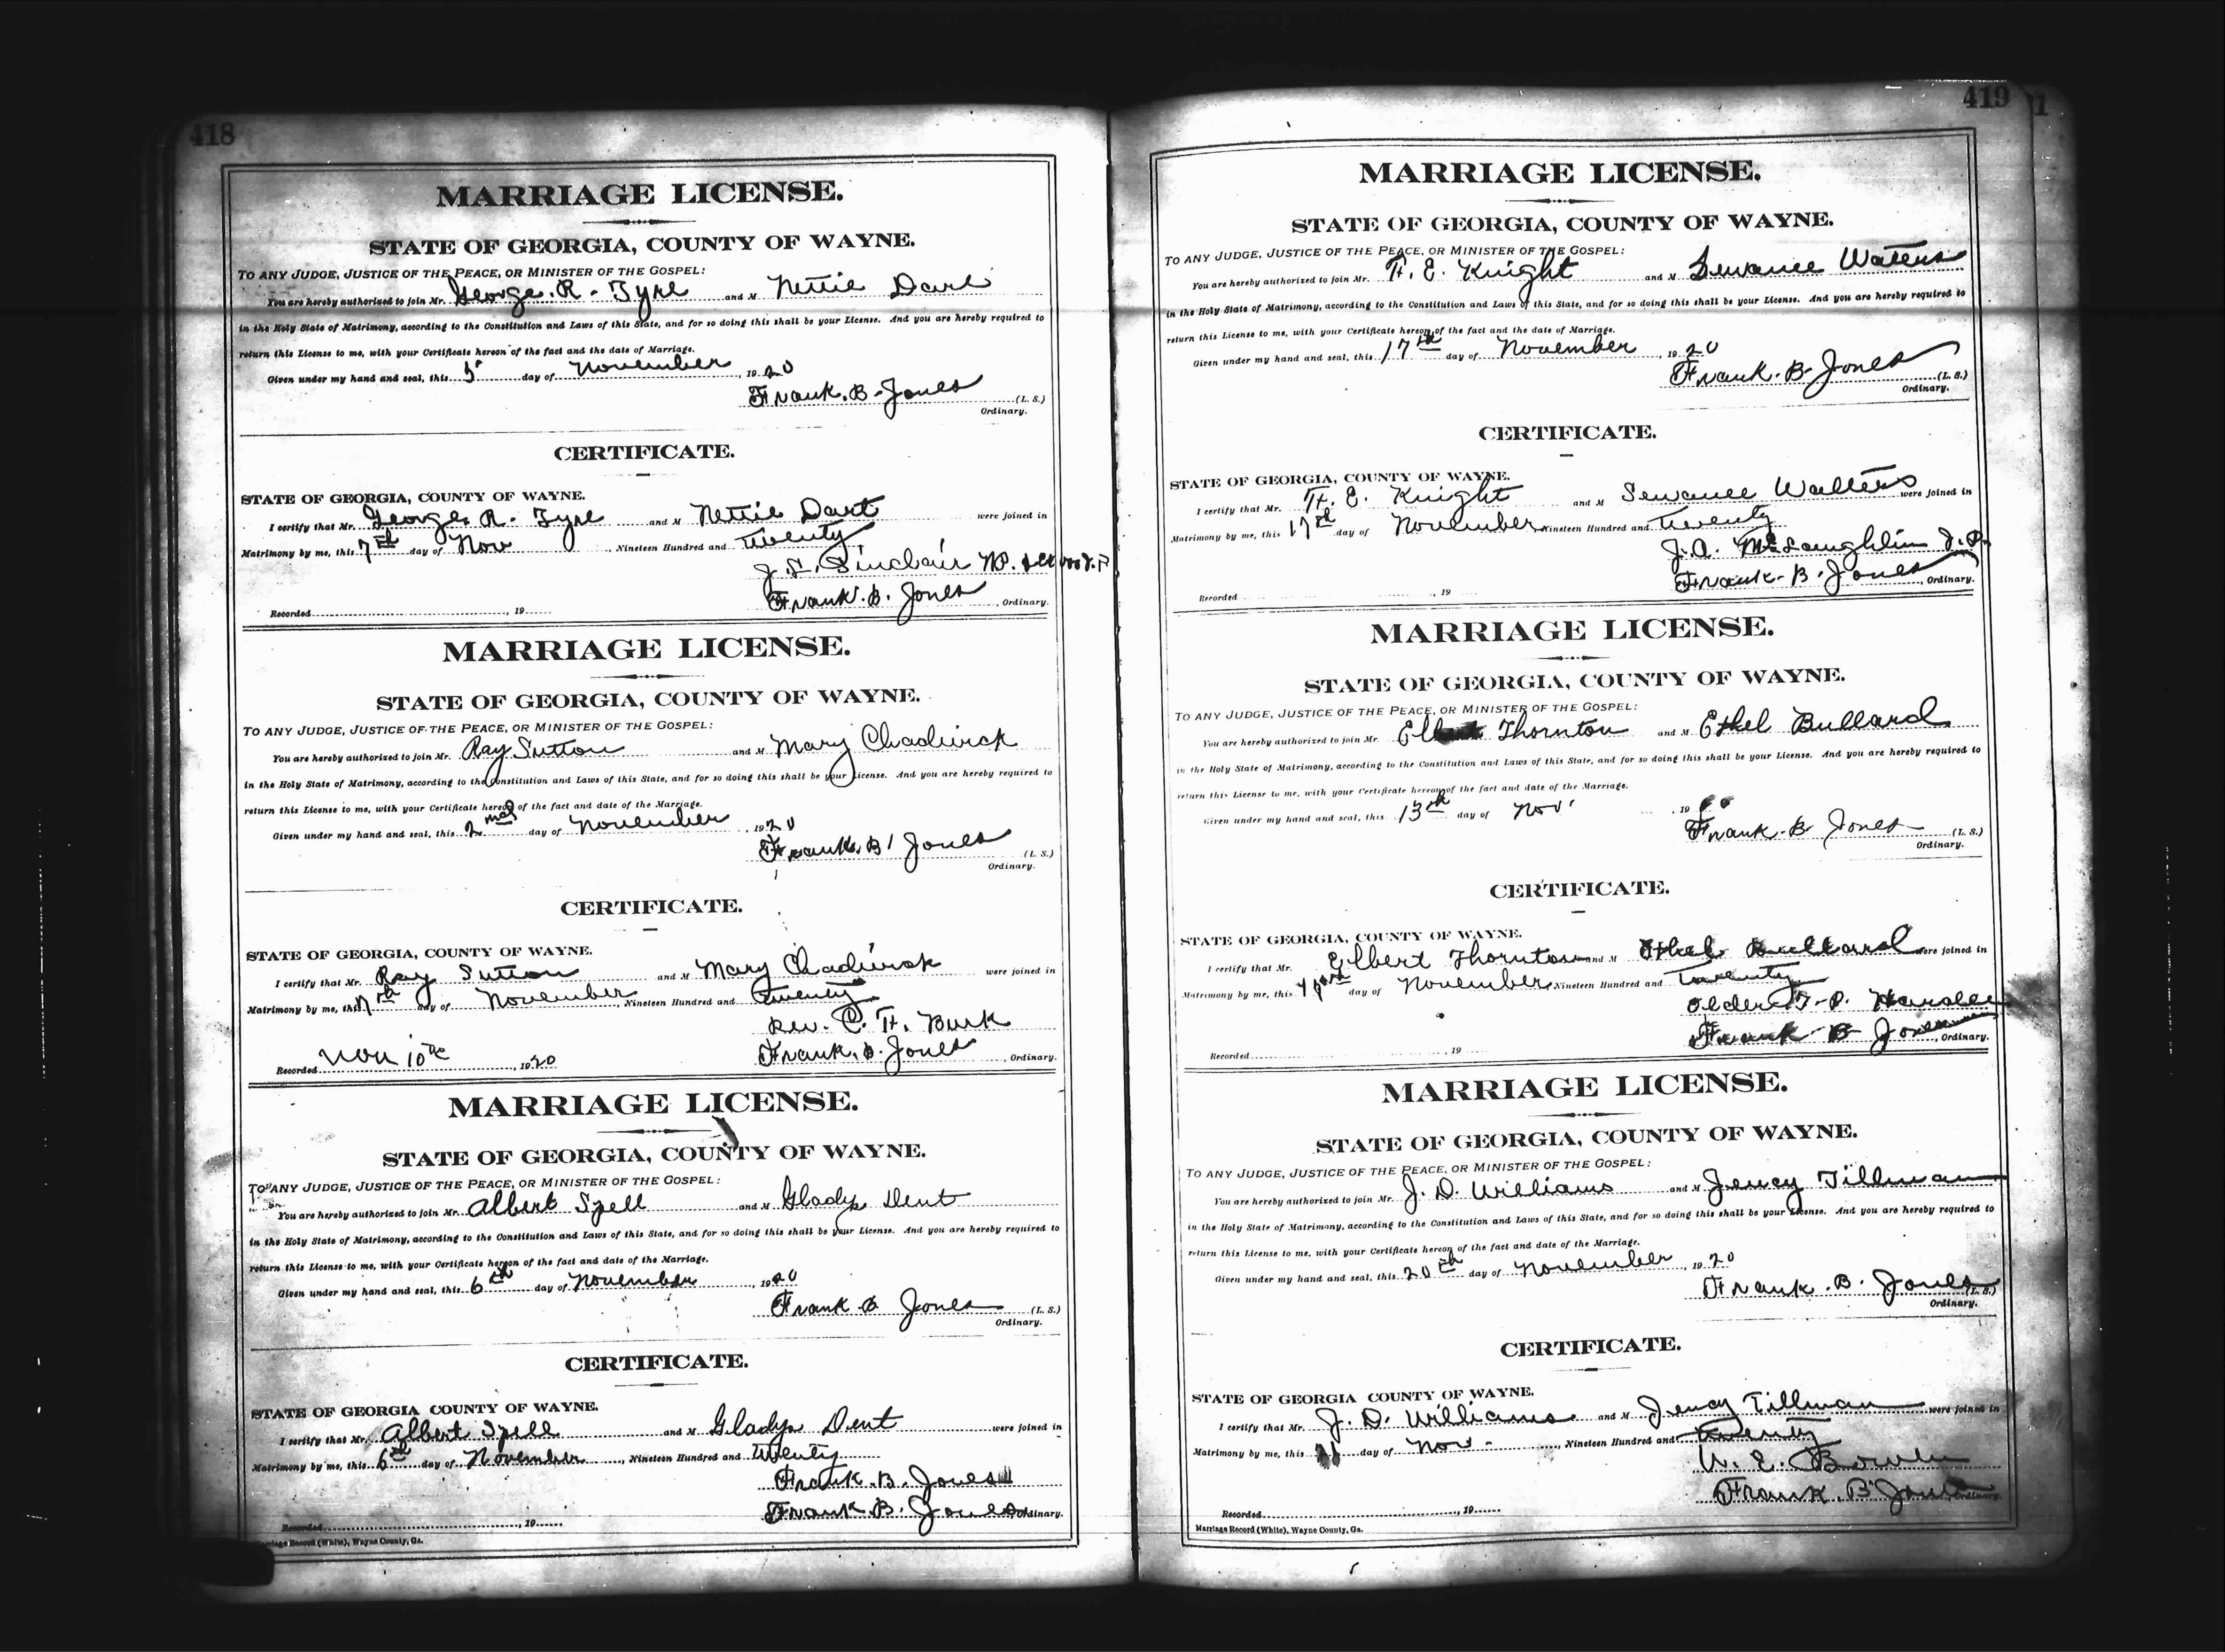 418
MARRIAGE LICENSE.
STATE OF GEORGIA, COUNTY OF WAYNE.
TO ANY JUDGE, JUSTICE OF THE PEACE, OR MINISTER OF THE GOSPEL:
You are hereby authorized to join Mr. George. R. Tyre and M Nettie Dart
in the Holy State of Matrimony, according to the Constitution and Laws of this State, and for so doing this shall be your License. And you are hereby required to
return this License to me, with your Certificate hereon of the fact and the date of Marriage.
Given under my hand and seal, this 5 day of November, 1920
Frank. B. Jones (L. S.)
Ordinary.
CERTIFICATE.
STATE OF GEORGIA, COUNTY OF WAYNE.
I certify that Mr. George R. Tyre and M Nettie Dart were joined in
Matrimony by me, this 7th day of Nov, Nineteen Hundred and Twenty
J. L. Sinclair NP.
Frank. B. Jones, Ordinary.
Recorded, 19
MARRIAGE LICENSE.
STATE OF GEORGIA, COUNTY OF WAYNE.
TO ANY JUDGE, JUSTICE OF THE PEACE, OR MINISTER OF THE GOSPEL:
You are hereby authorized to join Mr. Ray Sutton and M Mary Chadwick
in the Holy State of Matrimony, according to the Constitution and Laws of this State, and for so doing this shall be your License. And you are hereby required to
return this License to me, with your Certificate hereof of the fact and date of the Marriage.
Given under my hand and seal, this 2 day of November, 1920
Frank. B. Jones (L. S.)
Ordinary.
CERTIFICATE.
STATE OF GEORGIA, COUNTY OF WAYNE.
I certify that Mr. Ray Sutton and M Mary Chadwick were joined in
Matrimony by me, this 7th day of November, Nineteen Hundred and Twenty
Rev. C. H. Burk
Frank. B. Jones, Ordinary.
Recorded Nov 10th, 1920
MARRIAGE LICENSE.
STATE OF GEORGIA, COUNTY OF WAYNE.
TO ANY JUDGE, JUSTICE OF THE PEACE, OR MINISTER OF THE GOSPEL:
You are hereby authorized to join Mr. Albert Spell and M Gladys Dent
in the Holy State of Matrimony, according to the Constitution and Laws of this State, and for so doing this shall be your License. And you are hereby required to
return this License to me, with your Certificate hereon of the fact and date of the Marriage.
Given under my hand and seal, this 6th day of November, 1920
Frank B Jones (L. S.)
Ordinary.
CERTIFICATE.
STATE OF GEORGIA COUNTY OF WAYNE.
I certify that Mr. Albert Spell and M Gladys Dent were joined in
Matrimony by me, this 6th day of November, Nineteen Hundred and Twenty
Frank. B. Jones
Frank B. Jones Ordinary.
Recorded, 19
Marriage Record (White), Wayne County, Ga.
419
MARRIAGE LICENSE.
STATE OF GEORGIA, COUNTY OF WAYNE.
TO ANY JUDGE, JUSTICE OF THE PEACE, OR MINISTER OF THE GOSPEL:
You are hereby authorized to join Mr. H. E. Knight and M Sewanee Waters
in the Holy State of Matrimony, according to the Constitution and Laws of this State, and for so doing this shall be your License. And you are hereby required to
return this License to me, with your Certificate hereon of the fact and the date of Marriage.
Given under my hand and seal, this 17th day of November, 1920
Frank. B. Jones (L. S.)
Ordinary.
CERTIFICATE.
STATE OF GEORGIA, COUNTY OF WAYNE.
I certify that Mr. H. E. Knight and M Sewanee Walters were joined in
Matrimony by me, this 17th day of November, Nineteen Hundred and Twenty
J. A. McLaughlin J. P.
Frank. B. Jones, Ordinary.
Recorded, 19
MARRIAGE LICENSE.
STATE OF GEORGIA, COUNTY OF WAYNE.
TO ANY JUDGE, JUSTICE OF THE PEACE, OR MINISTER OF THE GOSPEL:
You are hereby authorized to join Mr. Elbert Thornton and M Ethel Bullard
in the Holy State of Matrimony, according to the Constitution and Laws of this State, and for so doing this shall be your License. And you are hereby required to
return this License to me, with your Certificate hereon of the fact and date of the Marriage.
Given under my hand and seal, this 13th day of Nov, 19
Frank. B Jones (L. S.)
Ordinary.
CERTIFICATE.
STATE OF GEORGIA, COUNTY OF WAYNE.
I certify that Mr. Elbert Thornton and M Ethel Bullard were joined in
Matrimony by me, this day of November, Nineteen Hundred and Twenty
Elder
Frank B Jones, Ordinary.
Recorded, 19
MARRIAGE LICENSE.
STATE OF GEORGIA, COUNTY OF WAYNE.
TO ANY JUDGE, JUSTICE OF THE PEACE, OR MINISTER OF THE GOSPEL:
You are hereby authorized to join Mr. J. D. Williams and M Jency Tillman
in the Holy State of Matrimony, according to the Constitution and Laws of this State, and for so doing this shall be your License. And you are hereby required to
return this License to me, with your Certificate hereon of the fact and date of the Marriage.
Given under my hand and seal, this 20th day of November, 1920
Frank. B. Jones (L. S.)
Ordinary.
CERTIFICATE.
STATE OF GEORGIA COUNTY OF WAYNE.
I certify that Mr. J. D. Williams and M Jency Tillman were joined in
Matrimony by me, this day of Nov, Nineteen Hundred and Twenty
W. E.
Frank. B Jones Ordinary.
Recorded, 19
Marriage Record (White), Wayne County, Ga.